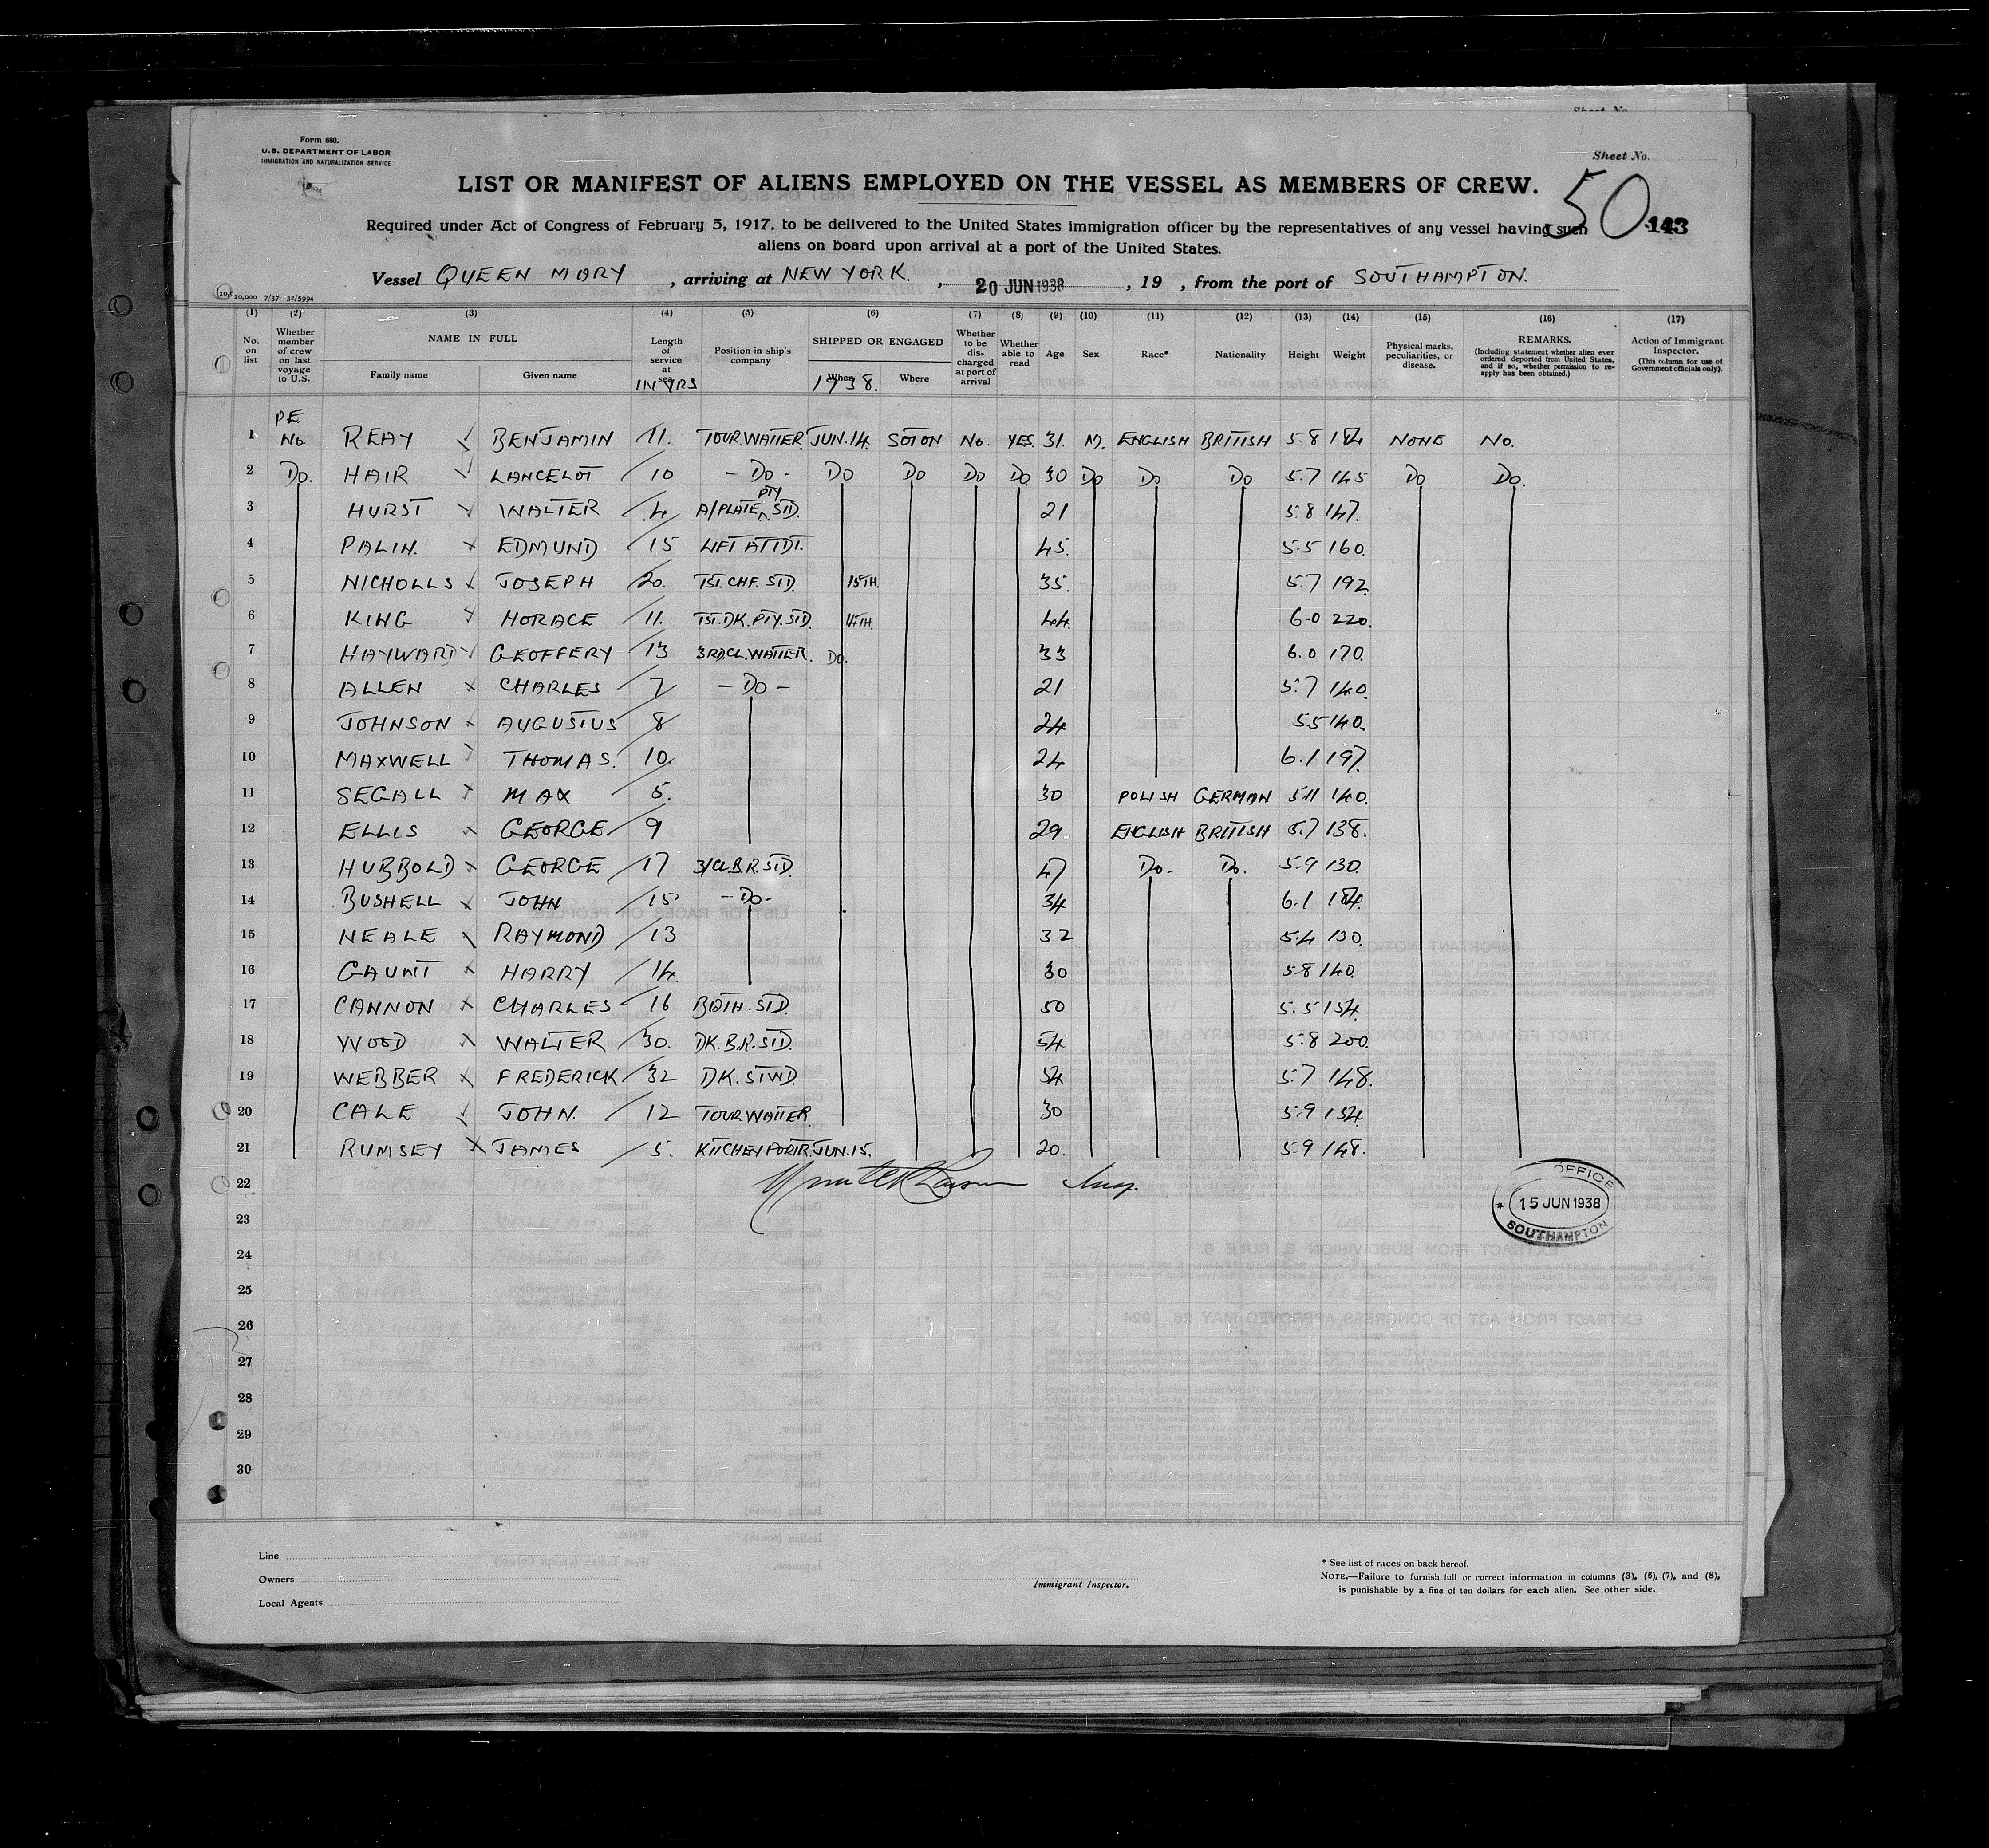 Sheet No.
Form 680.
U.S. DEPARTMENT OF LABOR
IMMIGRATION AND NATURALIZATION SERVICE
Sheet No.
LIST OR MANIFEST OF ALIENS EMPLOYED ON THE VESSEL AS MEMBERS OF CREW.
50 143
Required under Act of Congress of February 5, 1917, to be delivered to the United States immigration officer by the representatives of any vessel having such
aliens on board upon arrival at a port of the United States.
Vessel QUEEN MARY, arriving at NEW YORK., 20 JUN 1938, 19 , from the port of SOUTHAMPTON.
10,000 7/37 32/5994
(1) (2) (3) (4) (5) (6) (7) (8) (9) (10) (11) (12) (13) (14) (15) (16) (17)
No. on list
Whether member of crew on last voyage to U.S.
NAME IN FULL
Family name Given name
Length of service at sea
IN YRS
Position in ship's company
SHIPPED OR ENGAGED
When 1938. Where
Whether to be discharged at port of arrival
Whether able to read
Age Sex Race* Nationality Height Weight
Physical marks, peculiarities, or disease.
REMARKS.
(Including statement whether alien ever ordered deported from United States, and if so, whether permission to reapply has been obtained.)
Action of Immigrant Inspector.
(This column for use of Government officials only).
P.E.
1 No REAY BENJAMIN 11. TOUR.WAITER JUN.14. SOTON No. YES. 31. M. ENGLISH BRITISH 5.8 184 NONE No.
2 Do. HAIR LANCELOT 10 - Do - Do Do Do Do 30 Do Do Do 5.7 145 Do Do.
3 HURST WALTER 4 A/PLATE PTY STD. 21 5.8 147.
4 PALIN. EDMUND 15 LIFT ATTDT. 45. 5.5 160.
5 NICHOLLS JOSEPH 20. TST.CHF.STD. 15TH. 35. 5.7 192
6 KING HORACE 11. TST.DK.PTY.STD. 14TH. 44. 6.0 220.
7 HAYWARD GEOFFERY 13 3RD.CL.WAITER. Do. 33 6.0 170.
8 ALLEN CHARLES 7 - Do - 21 5.7 140.
9 JOHNSON AUGUSTUS 8 24 5.5 140.
10 MAXWELL THOMAS. 10 24 6.1 197.
11 SEGALL MAX 5. 30 POLISH GERMAN 5.11 140.
12 ELLIS GEORGE 9 29. ENGLISH BRITISH 5.7 138.
13 HUBBOLD GEORGE 17 3/CL.B.R.STD. 47 Do. Do. 5.9 130.
14 BUSHELL JOHN 15 - Do - 34 6.1 184.
15 NEALE RAYMOND 13 32 5.4 130.
16 GAUNT HARRY 14. 30 5.8 140.
17 CANNON CHARLES 16 BATH.STD. 50 5.5 154.
18 WOOD WALTER 30. DK.B.R.STD. 54 5.8 200.
19 WEBBER FREDERICK 32 DK.STWD. 54 5.7 148.
20 CALE JOHN. 12 TOUR WAITER. 30 5.9 154.
21 RUMSEY JAMES 5. KITCHEN PORTR. JUN.15. 20. 5.9 148.
22
OFFICE
15 JUN 1938
SOUTHAMPTON
23
24
25
26
27
28
29
30
Line
Owners
Local Agents
Immigrant Inspector.
* See list of races on back hereof.
NOTE.—Failure to furnish full or correct information in columns (3), (6), (7), and (8),
is punishable by a fine of ten dollars for each alien. See other side.